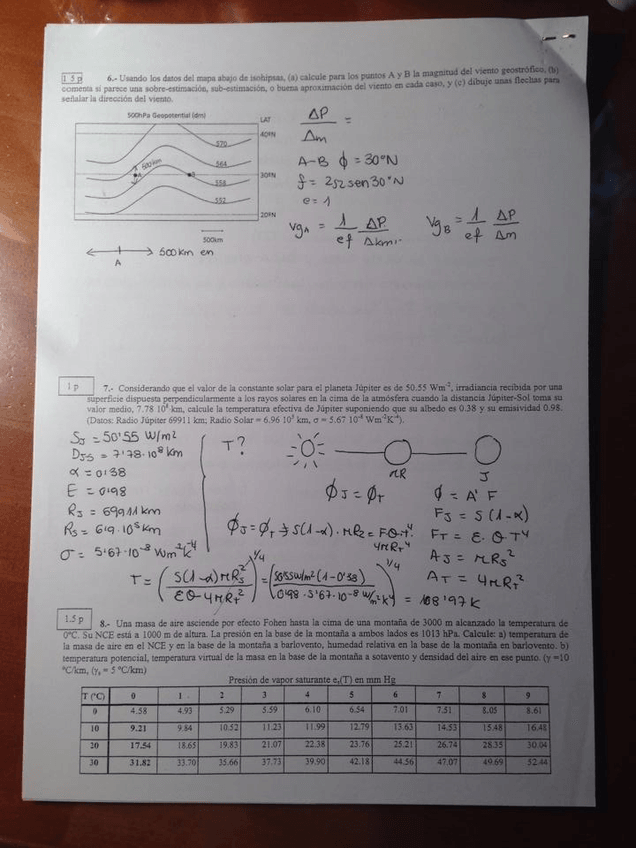 1.5 p
6.- Usando los datos del mapa abajo de isohipsas, (a) calcule para los puntos A y B la magnitud del viento geostrófico, (b)
comenta si parece una sobre-estimación, sub-estimación, o buena aproximación del viento en cada caso, y (c) dibuje unas flechas para
señalar la dirección del viento.
500hPa Geopotential (dm)
LAT
40ºN
30ºN
20ºN
570
564
558
552
500km
A
B
500km
500km en
A
ΔP
Δm
=
A-B ϕ = 30°N
f = 2Ω sen 30°N
e = 1
VgA = 1/ef ΔP/Δkm
VgB = 1/ef ΔP/Δm
1 p
7.- Considerando que el valor de la constante solar para el planeta Júpiter es de 50.55 Wm⁻², irradiancia recibida por una
superficie dispuesta perpendicularmente a los rayos solares en la cima de la atmósfera cuando la distancia Júpiter-Sol toma su
valor medio, 7.78 10⁸ km, calcule la temperatura efectiva de Júpiter suponiendo que su albedo es 0.38 y su emisividad 0.98.
(Datos: Radio Júpiter 69911 km; Radio Solar = 6.96 10⁵ km, σ = 5.67 10⁻⁸ Wm⁻²K⁻⁴).
SJ = 50'55 W/m²
DJS = 7'78·10⁸ km
α = 0'38
E = 0'98
RJ = 69911 km
σ = 5'67·10⁻⁸ Wm⁻²k⁻⁴
T?
J
ϕJ = ϕT
ϕ = A·F
FJ = S(1-α)
FT = ε·σ·T⁴
AJ = πRJ²
AT = 4πRT²
T = (S(1-α)πRS²/εσ4πRT²)^1/4 = (50'55 W/m²(1-0'38)/0'98·5'67·10⁻⁸ W/m²k⁴)^1/4 = 108'97 K
1.5 p
8.- Una masa de aire asciende por efecto Fohen hasta la cima de una montaña de 3000 m alcanzado la temperatura de
0ºC. Su NCE está a 1000 m de altura. La presión en la base de la montaña a ambos lados es 1013 hPa. Calcule: a) temperatura de
la masa de aire en el NCE y en la base de la montaña a barlovento, humedad relativa en la base de la montaña en barlovento. b)
temperatura potencial, temperatura virtual de la masa en la base de la montaña a sotavento y densidad del aire en ese punto. (γ =10
ºC/km, (γs = 5 ºC/km)
Presión de vapor saturante es(T) en mm Hg
T (ºC) 0 1 2 3 4 5 6 7 8 9
0 4.58 4.93 5.29 5.59 6.10 6.54 7.01 7.51 8.05 8.61
10 9.21 9.84 10.52 11.23 11.99 12.79 13.63 14.53 15.48 16.48
20 17.54 18.65 19.83 21.07 22.38 23.76 25.21 26.74 28.35 30.04
30 31.82 33.70 35.66 37.73 39.90 42.18 44.56 47.07 49.69 52.44